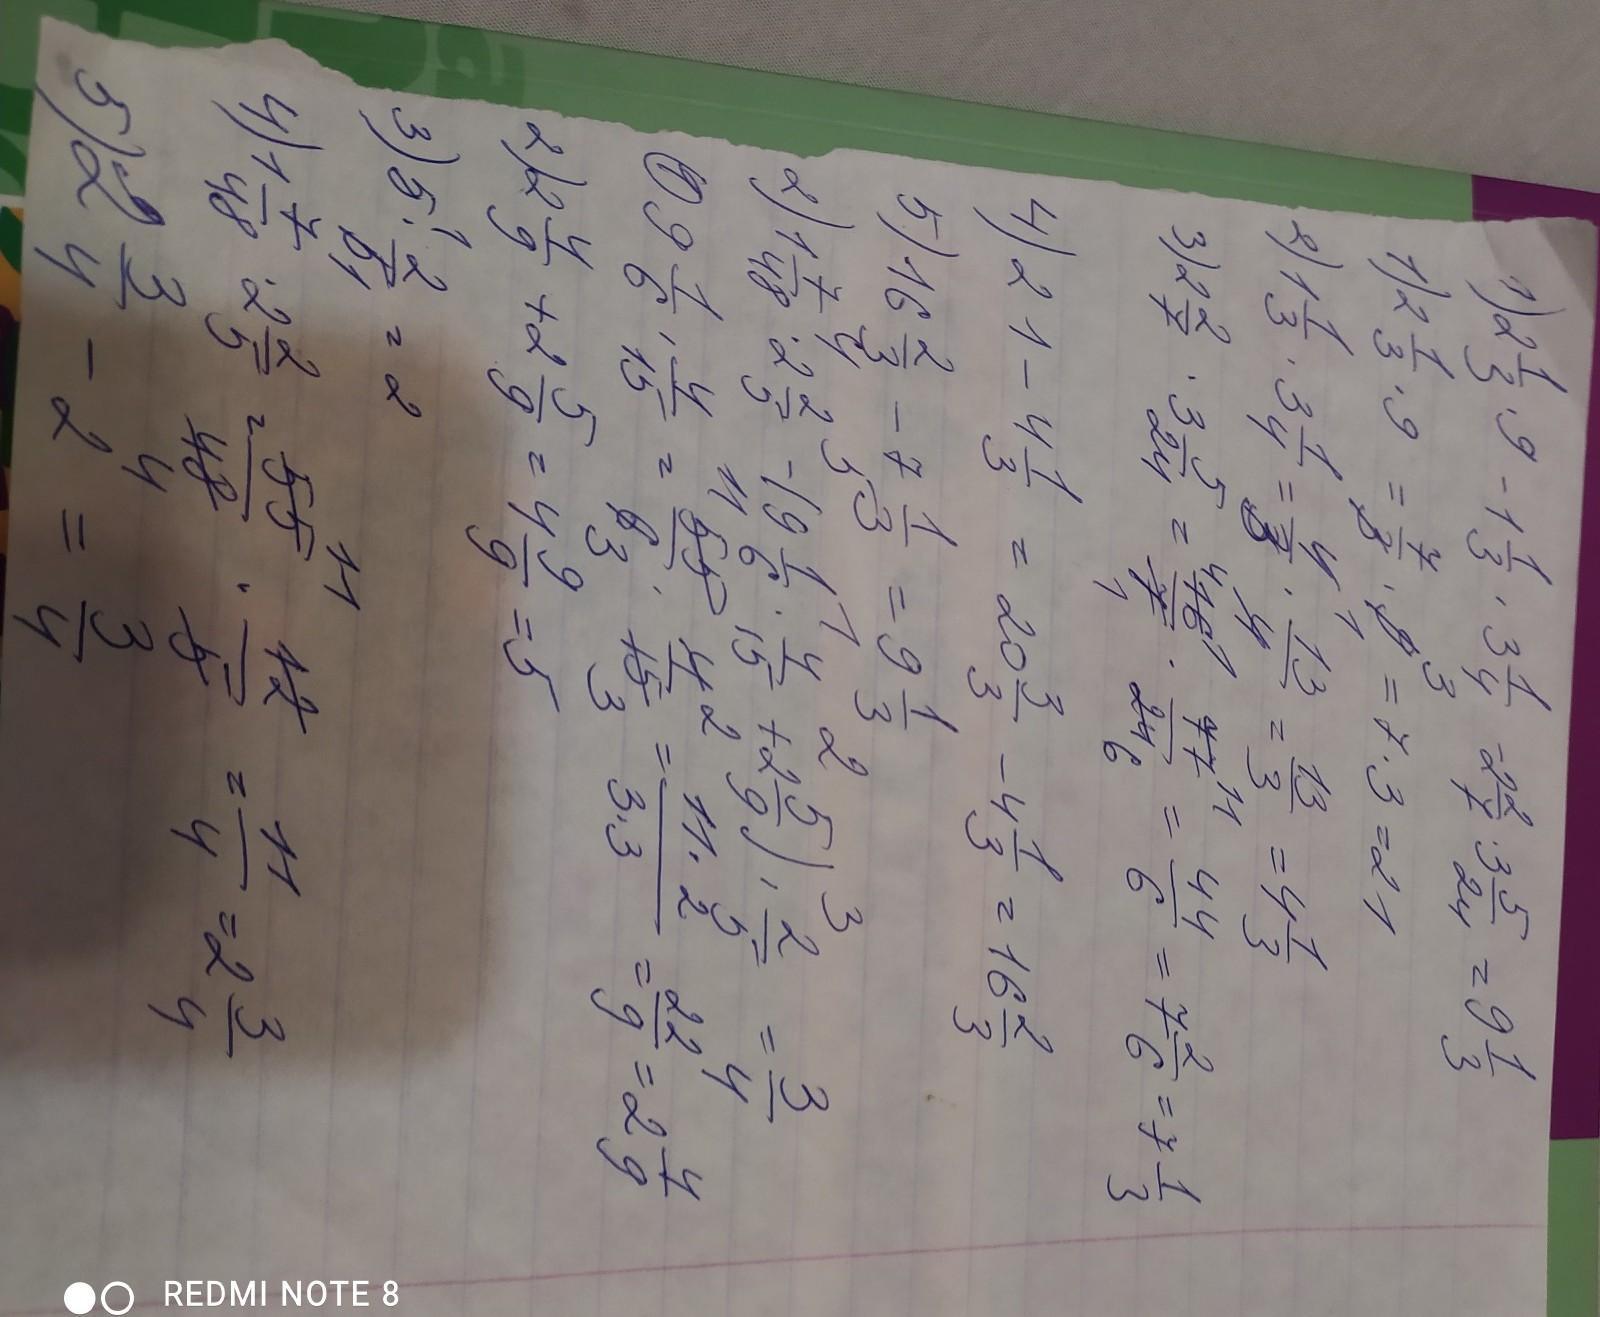 1) 2 1/3 · 9 - 1 1/3 · 3 1/4 - 2 2/7 · 3 5/24 = 9 1/3
1) 2 1/3 · 9 = 7/3 · 9 3 = 7 · 3 = 21
2) 1 1/3 · 3 1/4 = 4 1/3 · 13/4 = 13/3 = 4 1/3
3) 2 2/7 · 3 5/24 = 16/7 1 · 77 11/24 6 = 44/6 = 7 2/6 = 7 1/3
4) 21 - 4 1/3 = 20 3/3 - 4 1/3 = 16 2/3
5) 16 2/3 - 7 1/3 = 9 1/3
2) 1 7/48 : 2 2/5 - (9 1/6 · 4/15 + 2 5/9) · 2/5 = 3/4
1) 9 1/6 · 4/15 = 11 55/6 3 · 4 2/15 3 = 11·2/3·3 = 22/9 = 2 4/9
2) 2 4/9 + 2 5/9 = 4 9/9 = 5
3) 5 1 · 2/5 1 = 2
4) 1 7/48 · 2 2/5 = 55 11/48 4 · 12/5 = 11/4 = 2 3/4
5) 2 3/4 - 2 = 3/4
REDMI NOTE 8